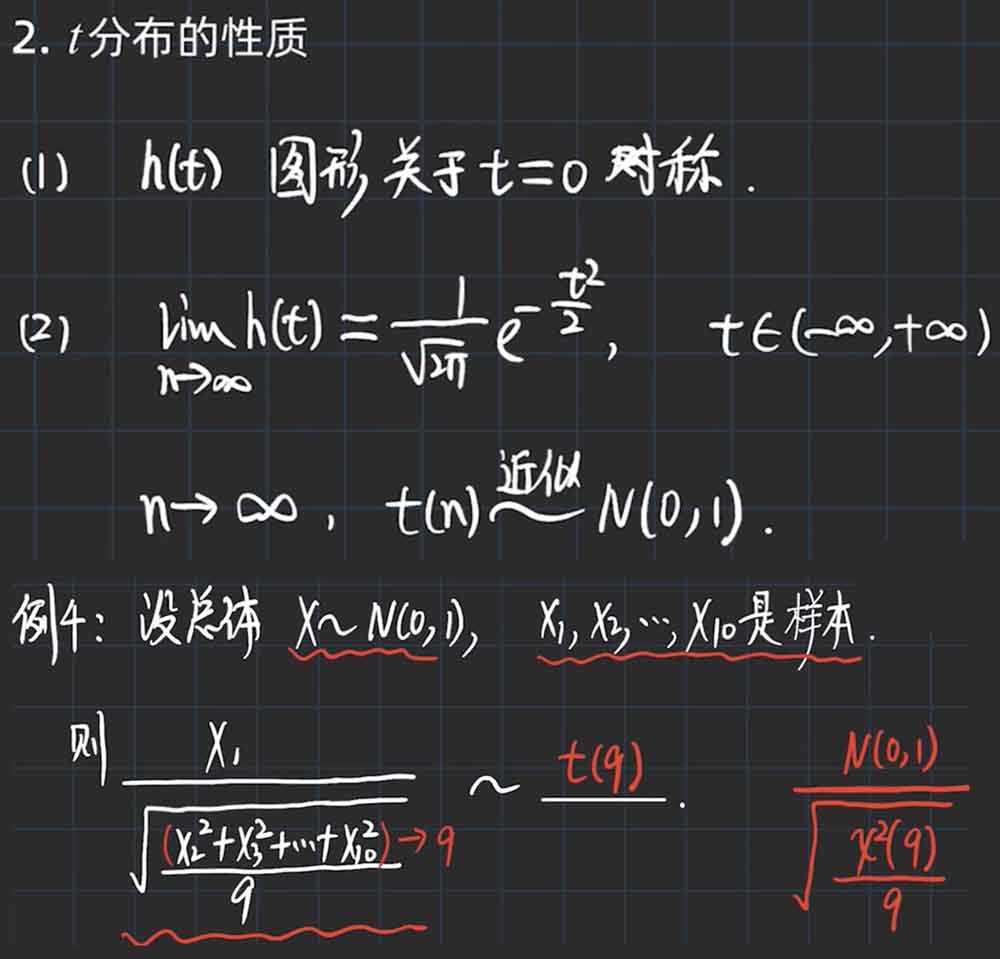 2. t分布的性质
(1) h(t) 图形关于 t=0 对称.
(2) lim n→∞ h(t) = 1/√2π e^(-t²/2), t∈(-∞,+∞)
n→∞, t(n) 近似 ~ N(0,1).
例4: 设总体 X~N(0,1), X₁,X₂,…,X₁₀是样本.
则 X₁/√((X₂²+X₃²+…+X₁₀²)/9) ~ t(9). N(0,1)/√(χ²(9)/9)
→9